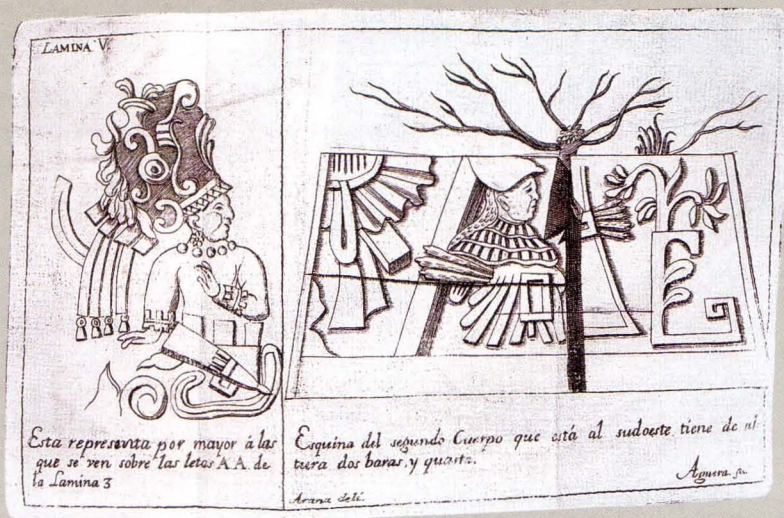 LAMINA V.
Esta representa por mayor á las
que se ven sobre las letas A.A. de
la Lamina 3
Esquina del segundo Cuerpo que está al sudoeste, tiene de al
tura dos baras, y quarta.
Arana deli.
Aguera su.